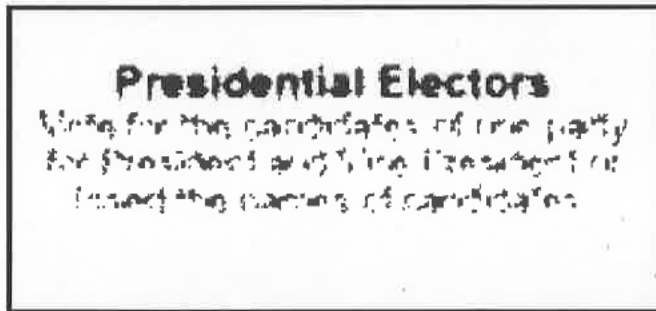 Presidential Electors
Vote for the candidates of one party
for President and Vice President or
insert the names of candidates